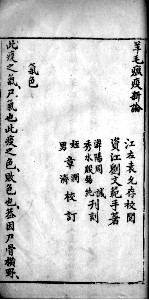 羊毛瘟疫新論
江左袁允存校閱
資江劉文範手著
溧陽周 誠
秀水殷錫純刊刻
姪章潤
男 濟校訂
氣色
此疫之氣尸氣也此疫之色敗色也蓋因尸骨橫野